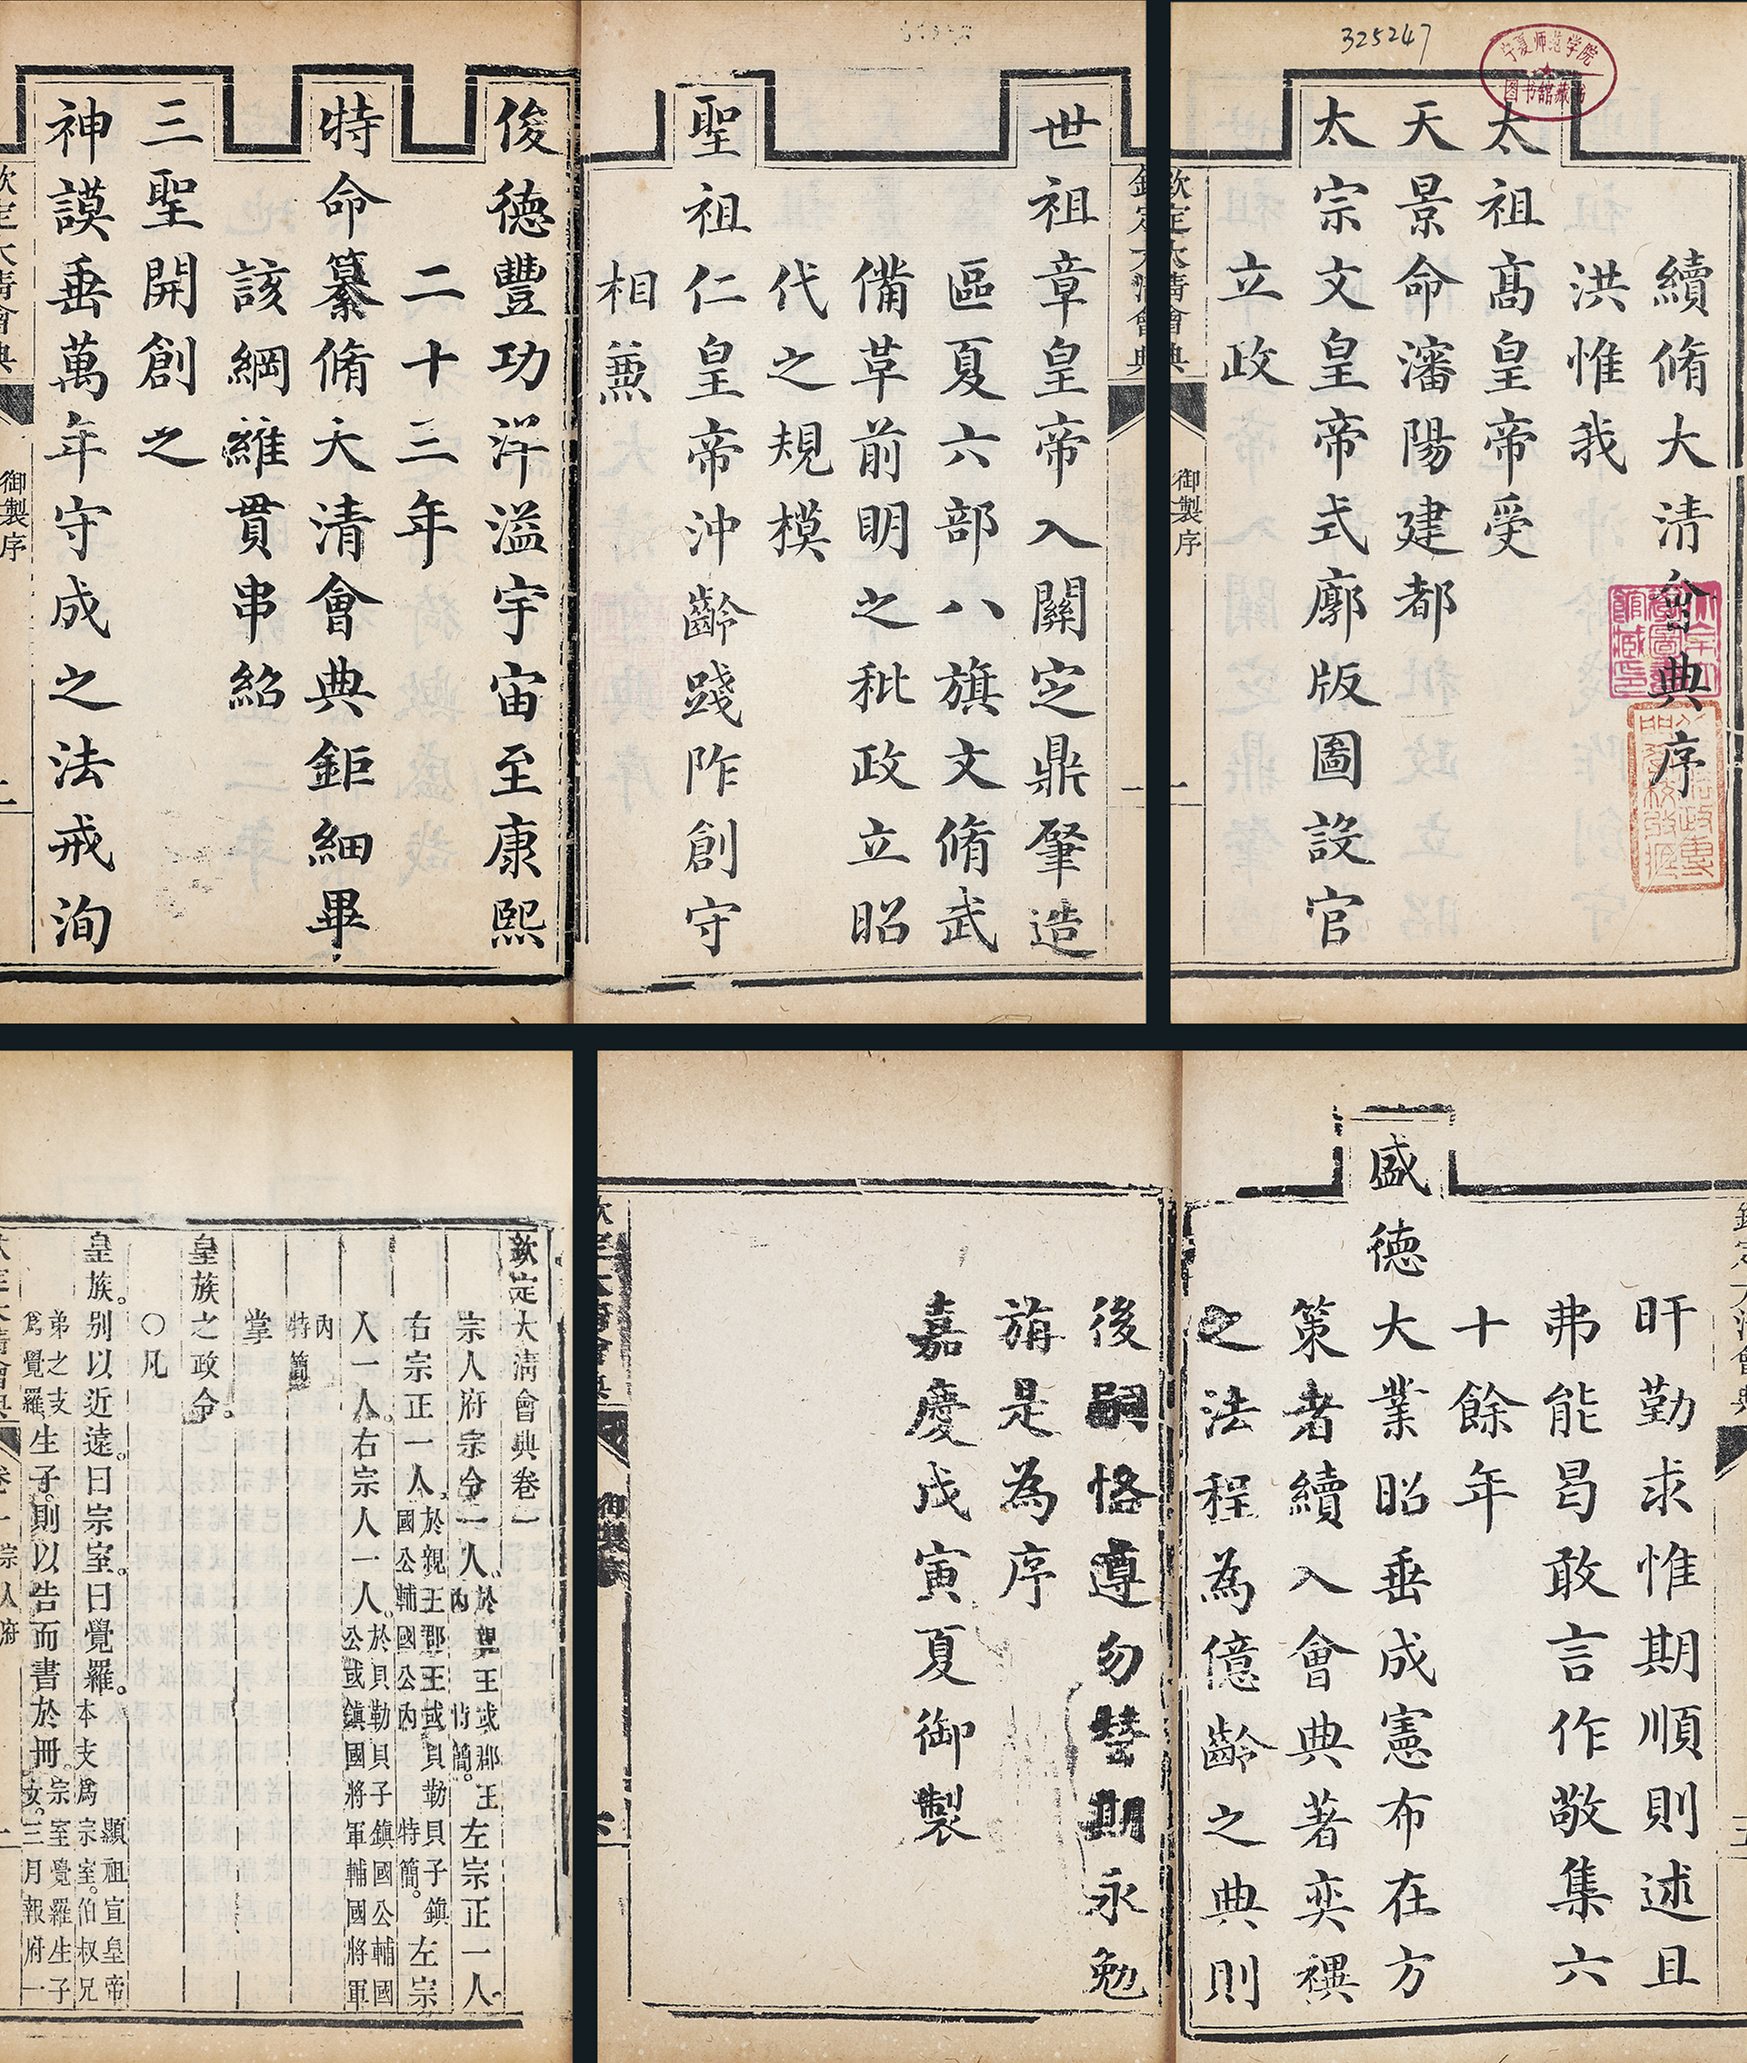 325247
宁夏师范学院
图书馆藏书
續脩大清會典序
洪惟我
太祖高皇帝受
天景命瀋陽建都
太宗文皇帝式廓版圖設官
立政
欽定大清會典
御製序
一
世祖章皇帝入關定鼎肇造
區夏六部八旗文脩武
備革前明之秕政立昭
代之規模
聖祖仁皇帝沖齡踐阼創守
相兼
俊德豐功洋溢宇宙至康熙
二十三年
特命纂脩大清會典鉅細畢
該綱維貫串紹
三聖開創之
神謨垂萬年守成之法戒洵
欽定大清會典
御製序
二
欽定大清會典
五
旰勤求惟期順則述且
弗能曷敢言作敬集六
十餘年
盛德大業昭垂成憲布在方
策者續入會典著奕禩
之法程為億齡之典則
後嗣恪遵勿替期永勉
旃是為序
嘉慶戊寅夏御製
欽定大清會典
御製序
六
欽定大清會典卷一
宗人府宗令一人於親王或郡王內特簡。左宗正一人
右宗正一人於親王郡王或貝勒貝子鎮國公輔國公內特簡。左宗
人一人。右宗人一人。於貝勒貝子鎮國公輔國公或鎮國將軍輔國將軍
內特簡
掌
皇族之政令。
○凡
皇族。別以近遠。曰宗室。曰覺羅。顯祖宣皇帝本支爲宗室。伯叔兄
弟之支爲覺羅。生子。則以告而書於冊。宗室覺羅生子女。三月報府一
欽定大清會典
卷一
宗人府
一